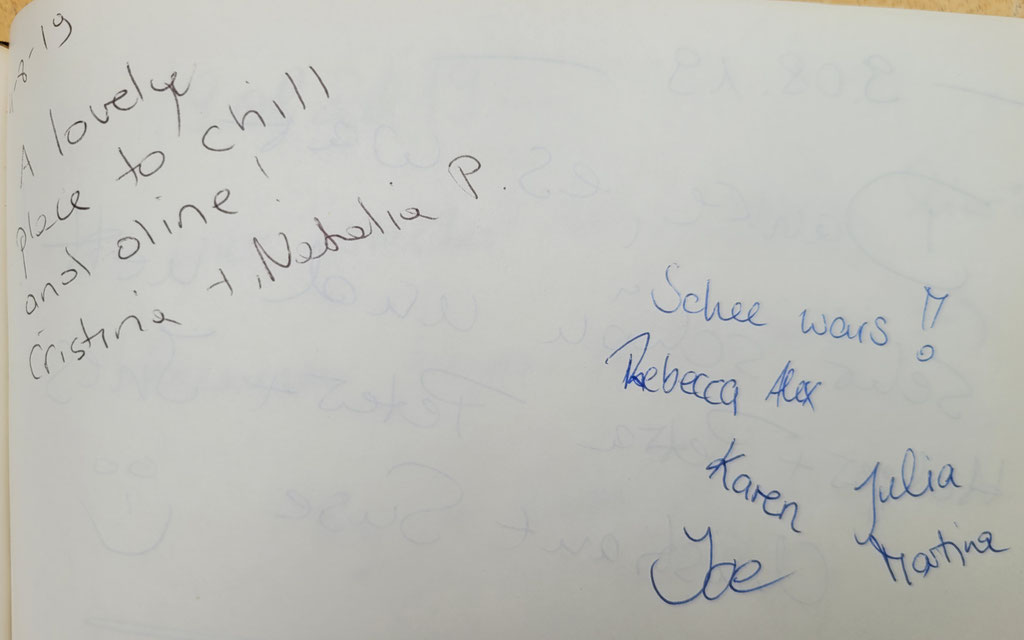 A lovely
place to chill
and dine!
Cristina + Natalia P.
Schee wars !!
Rebecca Alex
Karen Julia
Joe Martina